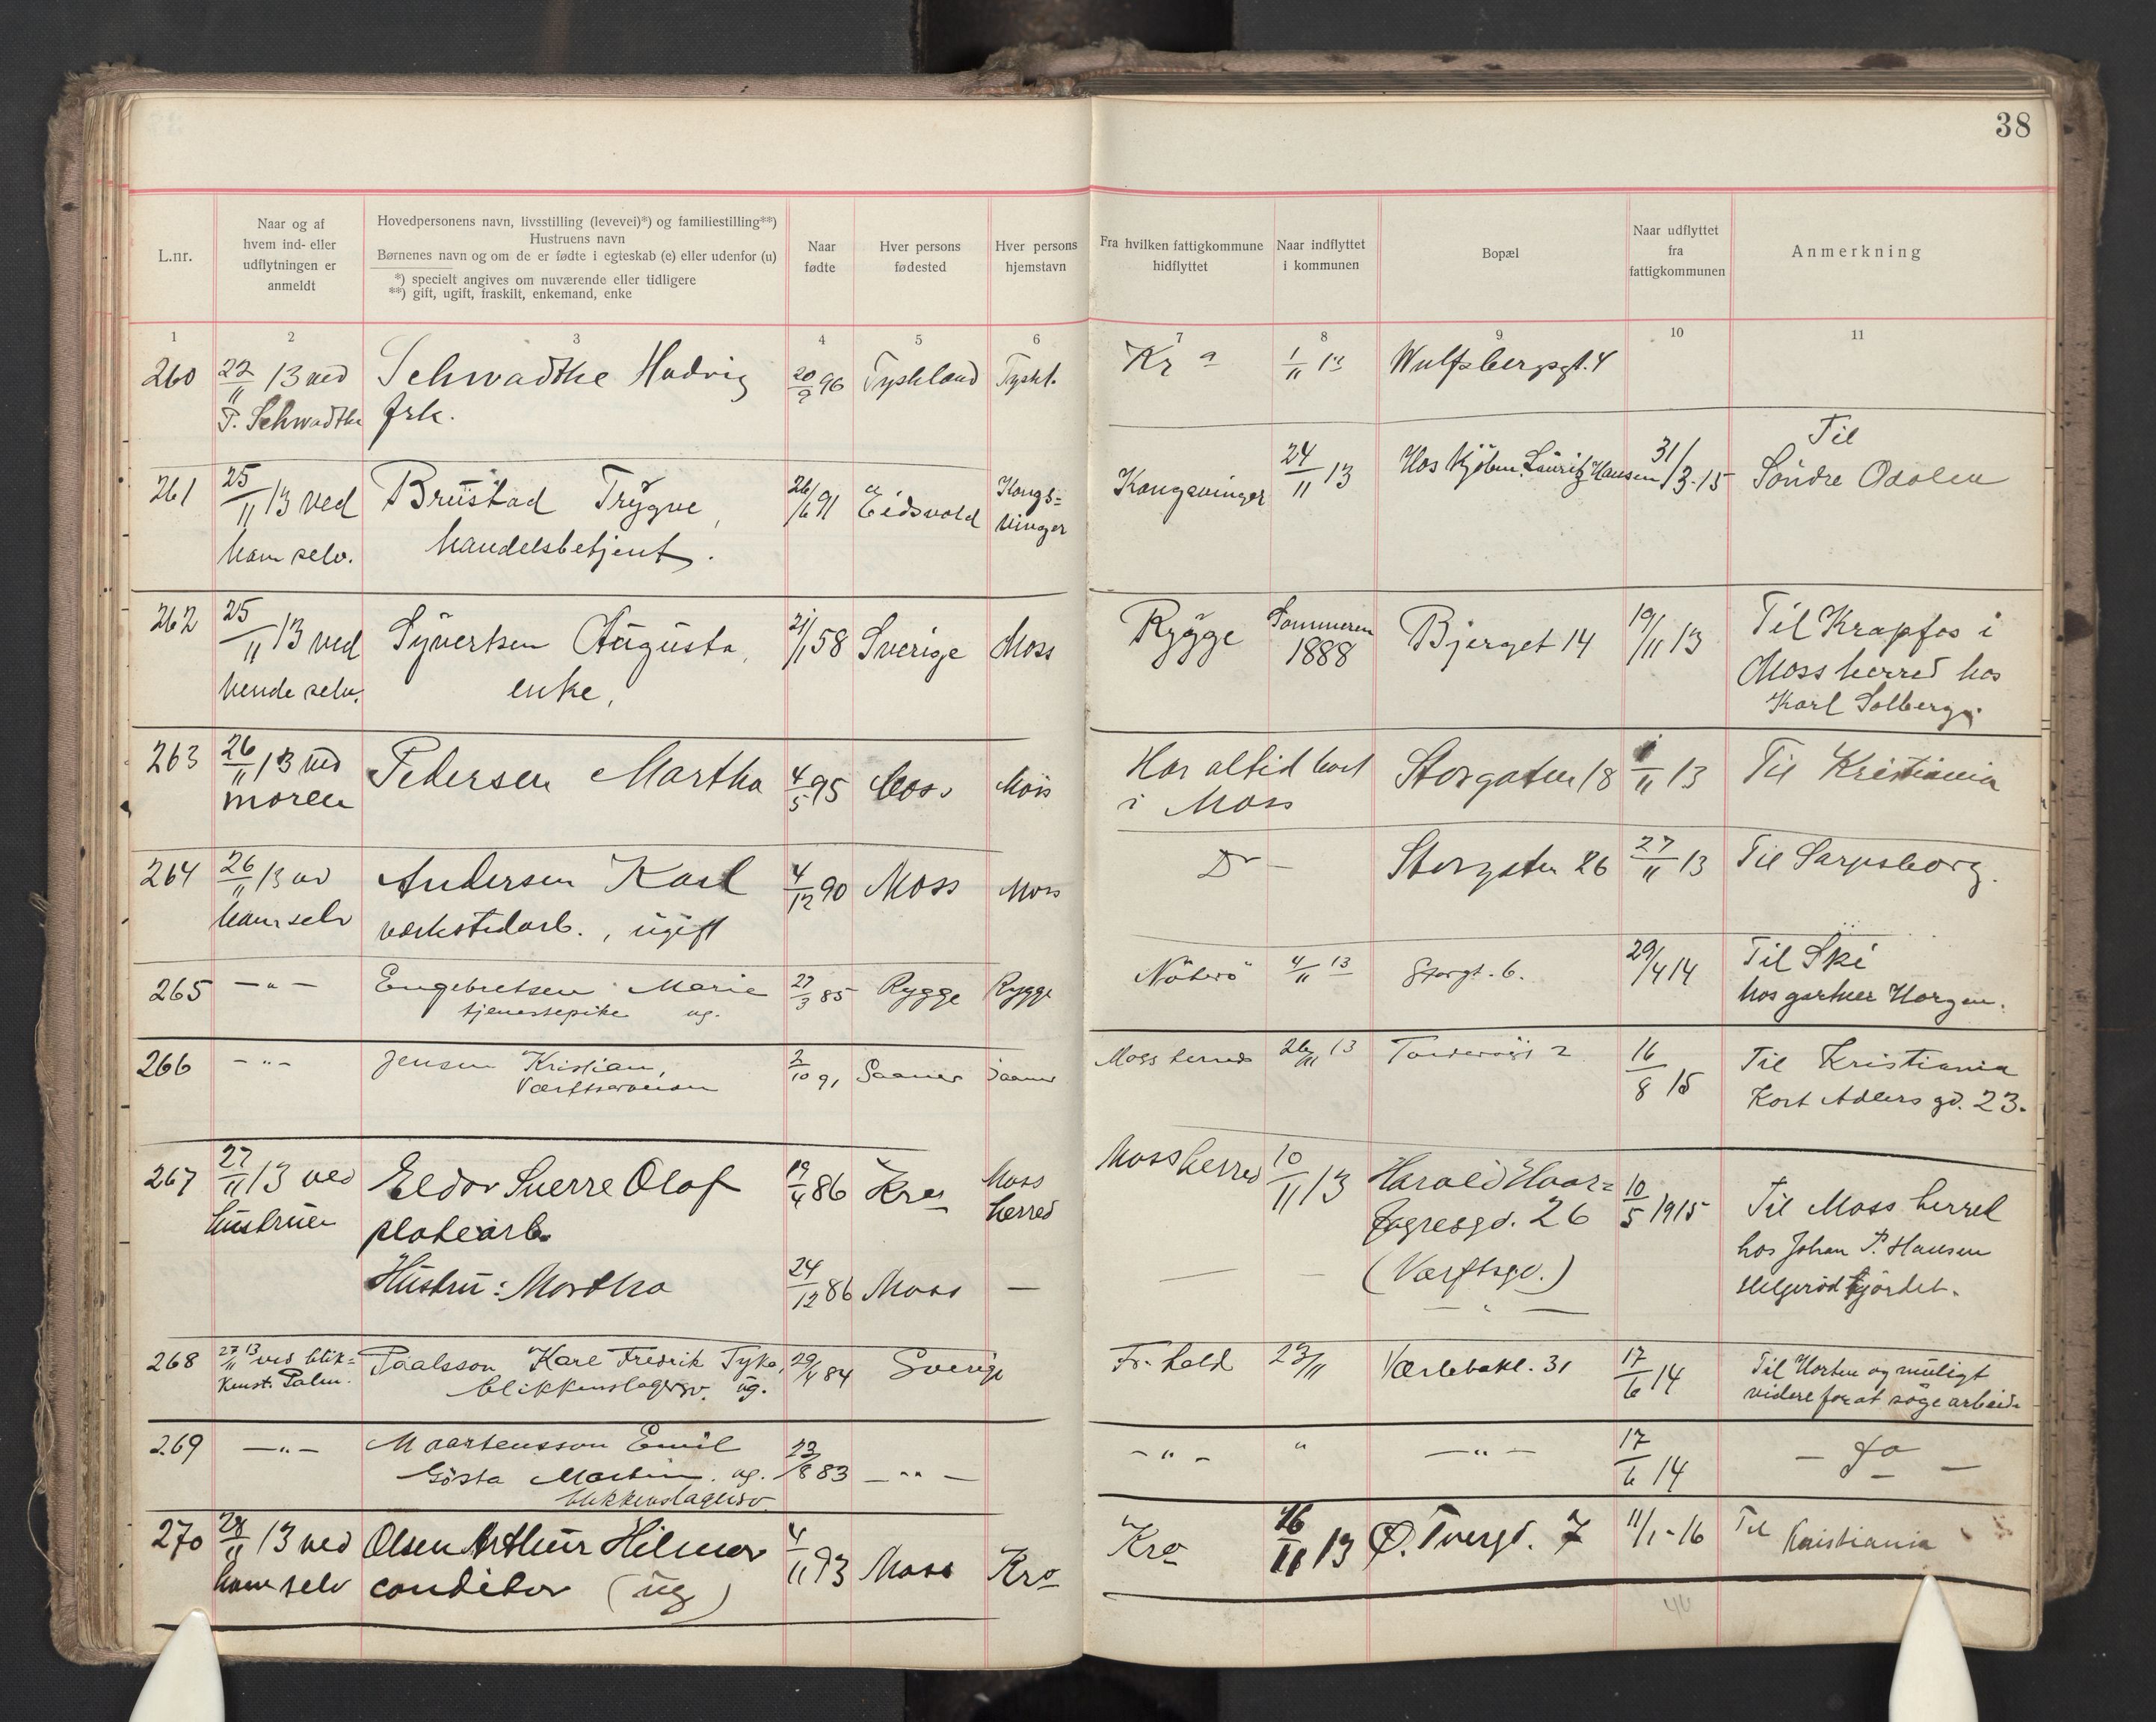 38
L.nr.
Naar og af
hvem ind- eller
udflytningen er
anmeldt
Hovedpersonens navn, livsstilling (levevei)*) og familiestilling**)
Hustruens navn
Børnenes navn og om de er fødte i egteskab (e) eller udenfor (u)
*) specielt angives om nuværende eller tidligere
**) gift, ugift, fraskilt, enkemand, enke
Naar
fødte
Hver persons
fødested
Hver persons
hjemstavn
Fra hvilken fattigkommune
hidflyttet
Naar indflyttet
i kommunen
Bopæl
Naar udflyttet
fra
fattigkommunen
Anmerkning
1 2 3 4 5 6 7 8 9 10 11
260 22/11 13 ved Schwadtke Hedvig 20/9 96 Tyskland Tyskl. Kra 1/11 13 Wulfsbergsgt. 4
P. Schwadtke frk.
261 25/11 13 ved Brustad Trygve, 26/6 91 Eidsvold Kongs- Kongsvinger 24/11 13 Hos Kjøbm. Lauritz Hansen 31/3-15 Til
vinger Söndre Odalen
ham selv. handelsbetjent.
262 25/11 13 ved Syvertsen Augusta, 21/1 58 Sverige Moss Rygge Sommeren Bjerget 14 19/11 13 Til Krapfos i
1888 Moss herred hos
hende selv. enke, Karl Solberg
263 26/11 13 ved Pedersen Martha 4/5 95 Moss Moss Har altid boet Storgaten 18 /11 13 Til Kristiania
moren i Moss
264 26/11 13 av Andersen Karl 4/12 90 Moss Moss Do - Storgaten 26 27/11 13 Til Sarpsborg.
ham selv verkstedarb., ugift
265 -"- Engebretsen Marie 27/3 85 Rygge Rygge Nöterö 4/11 13 Storgt. 6. 29/4 14 Til Ski
tjenestepike ug. hos gartner Horgen.
266 -"- Jensen Kristian, 2/10 91 Saaner Saaner Moss herred 26/11 13 2 16/8 15 Til Kristiania
Kort Adlers gd. 23.
267 27/11 13 ved Eldor Sverre Olaf 19/4 86 Kra Moss Moss herred 10/11 13 Harald Haar- 10/5 1915 Til Moss herred
hustruen platearb. herred fagresgd. 26 hos Johan P. Hansen
Hustru: Martha 24/12 86 Moss — — — (Værftsgd.) Helgerödkjördet.
— " —
268 27/11 13 ved blik- Paalsson Karl Fredrik Tyko, 29/4 84 Sverige Fr.hald 23/11 Værlebakk. 31 17/6 14 Til Horten og muligt
kenst. Palm. blikkenslagersv. ug. videre for at söge arbeide
269 -"- Maartensson Emil 23/8 83 -"- -"- " -"- 17/6 14 - Do -
Gösta Martin. ug.
blikkenslagersv.
270 28/11 13 ved Olsen Arthur Hilmar 4/11 93 Moss Kra Kra 26/11 13 Ø. Tvergt. 7 11/1-16 Til Kristiania
ham selv conditor (ug)